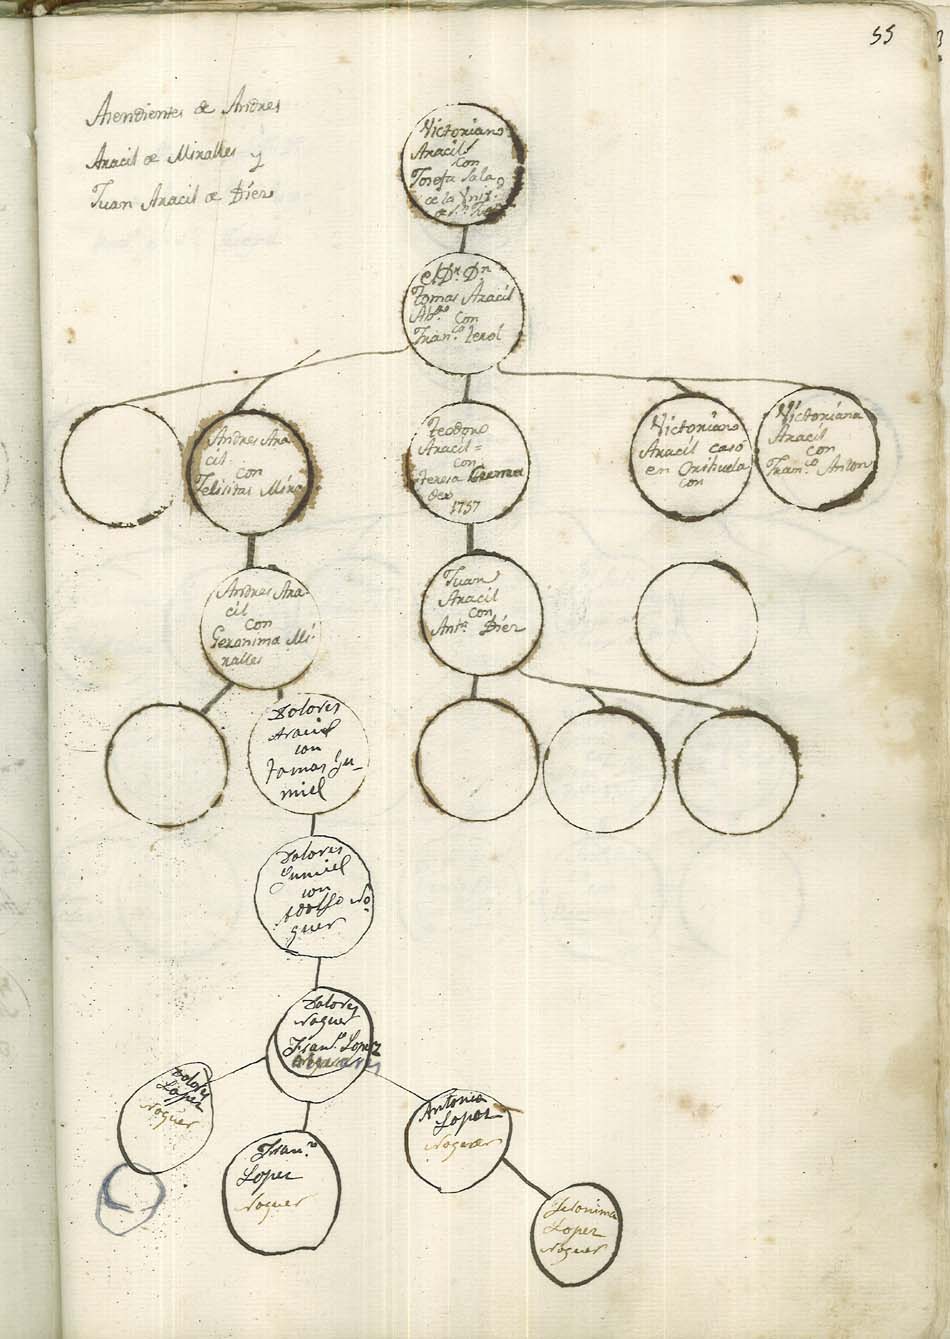 55
Asendientes de Andres
Aracil de Miralles y
Juan Aracil de Diez
Victoriano
Aracil
con
Josefa Sala
de la Vnit.
el Dr. Dn.
Tomas Aracil
Abdo. con
Franca. Lerol
Andres Ara
cil
con
Felisitas Mira
Teodoro
Aracil =
con
Teresa
1757
Victoriano
Aracil casó
en Orihuela
con
Victoriana
Aracil
con
Franco. Anton
Andres Ara-
cil
con
Geronima Mi-
ralles
Juan
Aracil
con
Anta. Diez
Dolores
Aracil
con
Tomas Gu-
miel
Dolores
Gumiel
con
Adolfo No-
guer
Dolores
Noguer
Franco. Lopez
Dolores
Lopez
Noguer
Franco.
Lopez
Noguer
Antonia
Lopez
Noguer
Jeronima
Lopez
Noguer